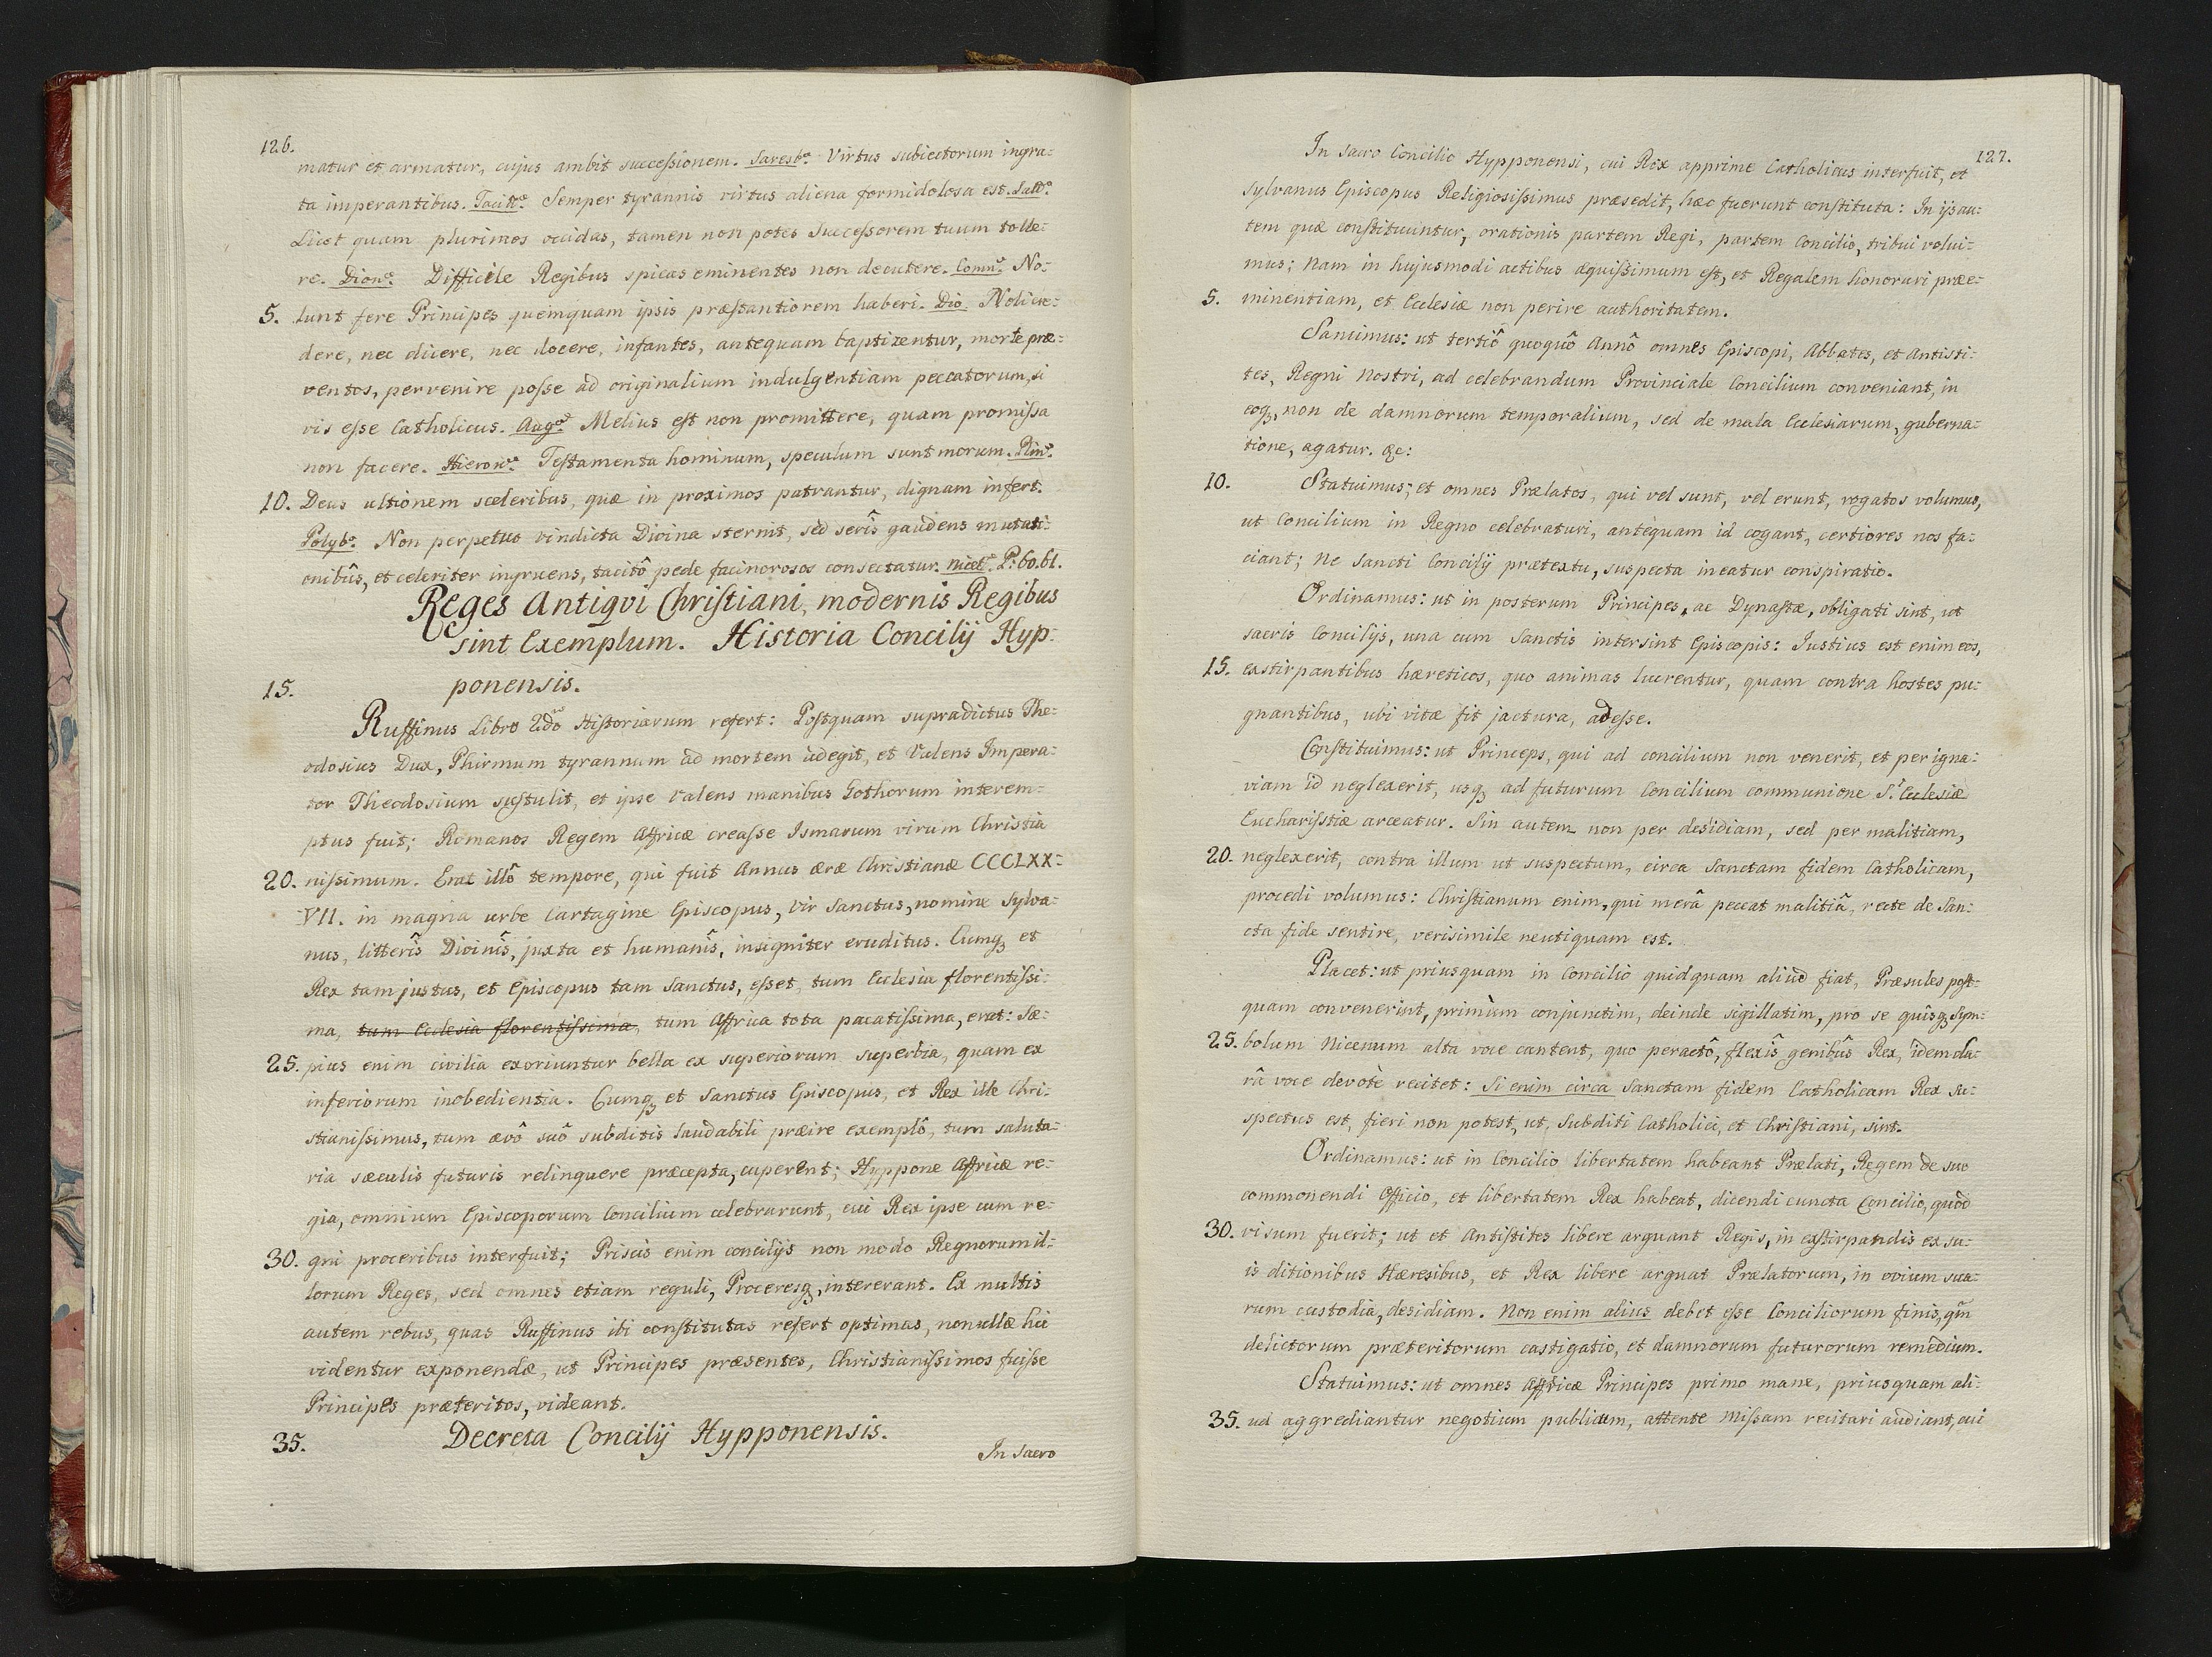 126.
matur et armatur, cujus ambit succeſsionem. Saresb.ᵉ Virtus subiectorum ingra:
ta imperantibus. Tacit.ᵉ Semper tyrannis virtus aliena formidolosa est. Sall.ᵉ
Licet quam plurimos occidas, tamen non potes Succeſsorem tuum tolle:
re. Dion.ᵉ Difficile Regibus spicas eminentes non decutere. Comn.ᵉ No:
5. lunt fere Principes quemquam ipsis præſtantiorem haberi. Dio. Noli cre:
dere, nec dicere, nec docere, infantes, antequam baptizentur, morte præ:
ventos, pervenire poſse ad originalium indulgentiam peccatorum, si
vis eſse Catholicus. Aug.ᵉ Melius eſt non promittere, quam promiſsa
non facere. Hieron.ᵉ Teſtamenta hominum, speculum sunt morum. Plin.ᵉ
10. Deus ultionem sceleribus, quæ in proximos patrantur, dignam infert.
Polyb.ᵉ Non perpetuo vindicta Divina sternit, sed serîs gaudens mutati:
onibûs, et celeriter ingruens, tacitô pede facinorosos consectatur. Nicet.ᵉ P: 60. 61.
Reges Antiqvi Chriſtiani, modernis Regibus
sint Exemplum. Historia Concilij Hyp:
15. ponensis.
Ruffinus Libro 2do Historiarum refert: Poſtquam supradictus The:
odosius Dux, Phirmum tyrannum ad mortem adegit, et Valens Impera:
tor Theodosium suſtulit, et ipse Valens manibus Gothorum interem:
ptus fuit; Romanos Regem Affricæ creaſse Ismarum virum Christia
20. niſsimum. Erat illô tempore, qui fuit Annus æræ Christianæ CCCLXX:
VII. in magna urbe Cartagine Episcopus, vir Sanctus, nomine Sylva:
nus, litterîs Divinîs, juxta et humanîs, insigniter eruditus. Cumqꝫ et
Rex tam justus, et Episcopus tam Sanctus, eſset, tum Ecclesia florentiſsi:
ma, tum Ecclesia florentiſsima, tum Affrica tota pacatiſsima, erat: Sæ:
25. pius enim civilia exoriuntur bella ex superiorum superbia, quam ex
inferiorum inobedientia. Cumqꝫ et Sanctus Episcopus, et Rex ille Chri:
stianiſsimus, tum ævô suô subditis laudabili præire exemplô, tum saluta:
ria sæculis futuris relinquere præcepta, cuperent; Hyppone Affricæ re:
gia, omnium Episcoporum Concilium celebrarunt, cui Rex ipse cum re:
30. gni proceribus interfuit; Priscis enim concilijs non modo Regnorum il:
lorum Reges, sed omnes etiam reguli, Proceresqꝫ, intererant. Ex multis
autem rebus, quas Ruffinus ibi conſtitutas refert optimas, nonullæ hic
videntur exponendæ, ut Principes præsentes, Chriſtianiſsimos fuiſse
Principes præteritos, videant.
35. Decreta Concilij Hypponensis.
In Sacro
127.
In Sacro Concilio Hypponensi, cui Rex apprime Catholicus interfuit, et
Sylvanus Episcopus Religiosiſsimus præsedit, hæc fuerunt conſtituta: In ijs au:
tem quæ conſtituuntur, orationis partem Regi, partem Concilio, tribui volui:
mus; Nam in hujusmodi actibus æquiſsimum eſt, et Regalem honorari præe:
5. minentiam, et Ecclesiæ non perire authoritatem.
Sancimus: ut tertiô quoquô Annô omnes Episcopi, Abbates, et Antisti:
tes, Regni Nostri, ad celebrandum Provinciale Concilium conveniant, in
eoqꝫ, non de damnorum temporalium, sed de mala Ecclesiarum, guberna:
tione, agatur. &c:
10. Statuimus; et omnes Prælatos, qui vel sunt, vel erunt, rogatos volumus,
ut Concilium in Regno celebraturi, antequam id cogant, certiores nos fa:
ciant; ne Sancti Concilij prætextu, suspecta ineatur conspiratio.
Ordinamus: ut in posterum Principes, ac Dynaſtæ, obligati sint, ut
sacris Concilijs, una cum Sanctis intersint Episcopis: Iustius est enim eos,
15. exstirpantibus hæreticos, quo animas lucrentur, quam contra hostes pu:
gnantibus, ubi vitæ fit jactura, adeſse.
Conſtituimus: ut Princeps, qui ad concilium non venerit, et per igna:
viam id neglexerit, usqꝫ ad futurum Concilium communione S. Ecclesiæ
Euchariſtiæ arceatur. Sin autem non per desidiam, sed per malitiam,
20. neglexerit, contra illum ut suspectum, circa Sanctam fidem Catholicam,
procedi volumus: Chriſtianum enim, qui merâ peccat malitiâ, recte de San:
cta fide sentire, verisimile neutiquam est.
Placet: ut priusquam in Concilio quidquam aliud fiat, Præsules poſt:
quam convenerint, primùm conjunctim, deinde sigillatim, pro se quîsqꝫ Sym:
25. bolum Nicenum alta voce cantent, quo peractô, flexîs genibûs Rex, idem cla:
râ voce devotè recitet: Si enim circa Sanctam fidem Catholicam Rex su:
spectus est, fieri non potest, ut, Subditi Catholici, et Chriſtiani, sint.
Ordinamus: ut in Concilio libertatem habeant Prælati, Regem de suo
commonendi Officio, et libertatem Rex habeat, dicendi cuncta Concilio, quòd
30. visum fuerit; ut et Antiſtites libere arguant Regis, in exſtirpandis ex su:
is ditionibus Hæresibus, et Rex libere arguat Prælatorum, in ovium sua:
rum custodia, desidiam. Non enim alius debet eſse Conciliorum finis, qm̃
delictorum præteritorum castigatio, et damnorum futurorum remedium.
Statuimus: ut omnes Affricæ Principes primo mane, priusquam ali:
35. ud aggrediantur negotium publicum, attente Miſsam recitari audiant, cui